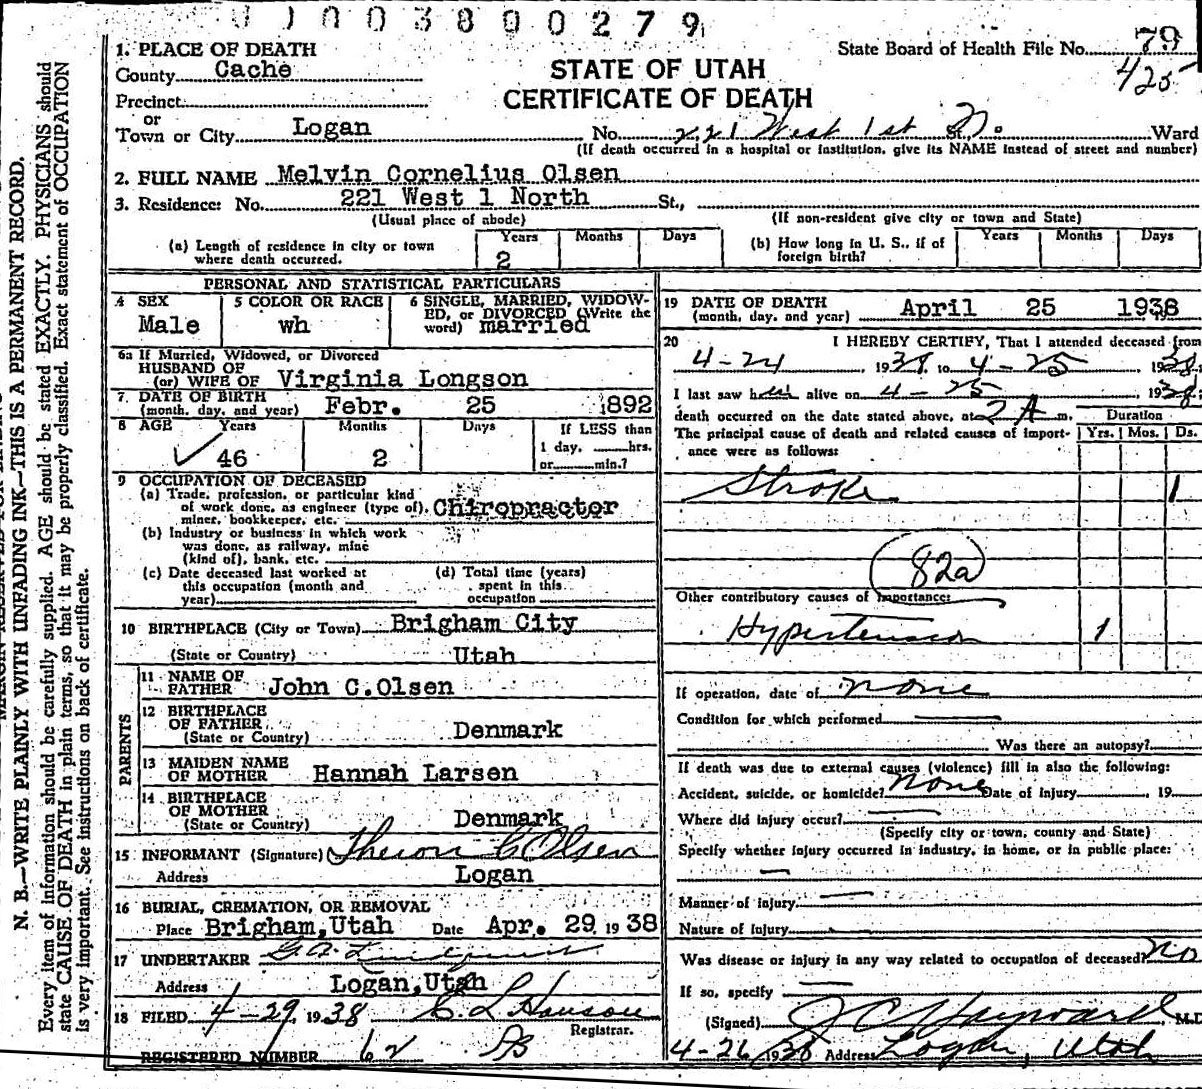 0003800279
1. PLACE OF DEATH
State Board of Health File No. 79
County Cache
425
STATE OF UTAH
Precinct
CERTIFICATE OF DEATH
or
Town or City Logan No. 221 West 1st St. N. Ward
(If death occurred in a hospital or institution, give its NAME instead of street and number)
2. FULL NAME Melvin Cornelius Olsen
3. Residence: No. 221 West 1 North St.,
(Usual place of abode) (If non-resident give city or town and State)
(a) Length of residence in city or town where death occurred. Years 2 Months Days
(b) How long in U. S., if of foreign birth? Years Months Days
PERSONAL AND STATISTICAL PARTICULARS
4 SEX Male
5 COLOR OR RACE wh
6 SINGLE, MARRIED, WIDOWED, OR DIVORCED (Write the word) married
6a If Married, Widowed, or Divorced
HUSBAND OF
(or) WIFE OF Virginia Longson
7. DATE OF BIRTH
(month, day, and year) Febr. 25 1892
8 AGE Years 46 Months 2 Days
If LESS than
1 day, hrs.
or min.?
9 OCCUPATION OF DECEASED
(a) Trade, profession, or particular kind
of work done, as engineer (type of), Chiropractor
miner, bookkeeper, etc.
(b) Industry or business in which work
was done, as railway, mine
(kind of), bank, etc.
(c) Date deceased last worked at
this occupation (month and
year)
(d) Total time (years)
spent in this
occupation
10 BIRTHPLACE (City or Town) Brigham City
(State or Country) Utah
PARENTS
11 NAME OF
FATHER John C.Olsen
12 BIRTHPLACE
OF FATHER
(State or Country) Denmark
13 MAIDEN NAME
OF MOTHER Hannah Larsen
14 BIRTHPLACE
OF MOTHER
(State or Country) Denmark
15 INFORMANT (Signature) Theron C Olsen
Address Logan
16 BURIAL, CREMATION, OR REMOVAL
Place Brigham,Utah Date Apr. 29, 1938
17 UNDERTAKER
Address Logan,Utah
18 FILED 4-29, 1938 C L Hanson
Registrar.
REGISTERED NUMBER 62
19 DATE OF DEATH
(month, day, and year) April 25 1938
20 I HEREBY CERTIFY, That I attended deceased from
4-24 1938, to 4-25 1938.
I last saw him alive on 4-25 1938,
death occurred on the date stated above, at 2 A m. Duration
The principal cause of death and related causes of import- Yrs. Mos. Ds.
ance were as follows:
Stroke 1
82a
Other contributory causes of importance:
Hypertension 1
If operation, date of none
Condition for which performed
Was there an autopsy?
If death was due to external causes (violence) fill in also the following:
Accident, suicide, or homicide? none Date of injury , 19
Where did injury occur?
(Specify city or town, county and State)
Specify whether injury occurred in industry, in home, or in public place:
Manner of injury
Nature of injury
Was disease or injury in any way related to occupation of deceased? no
If so, specify
(Signed) J C Hayward, M.D.
4-26 1938 Address Logan, Utah
N. B.—WRITE PLAINLY WITH UNFADING INK—THIS IS A PERMANENT RECORD.
Every item of information should be carefully supplied. AGE should be stated EXACTLY. PHYSICIANS should
state CAUSE OF DEATH in plain terms, so that it may be properly classified. Exact statement of OCCUPATION
is very important. See instructions on back of certificate.